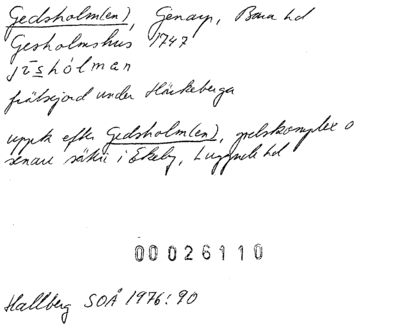 Gedsholm(en), Genarp, Bara hd
Gesholmshus 1747
jɪ̄shólman
frälsejord under Häckeberga
uppk efter Gedsholm(en), godskomplex o
senare säteri i Ekeby, Luggude hd
00026110
Hallberg SOÅ 1976:90